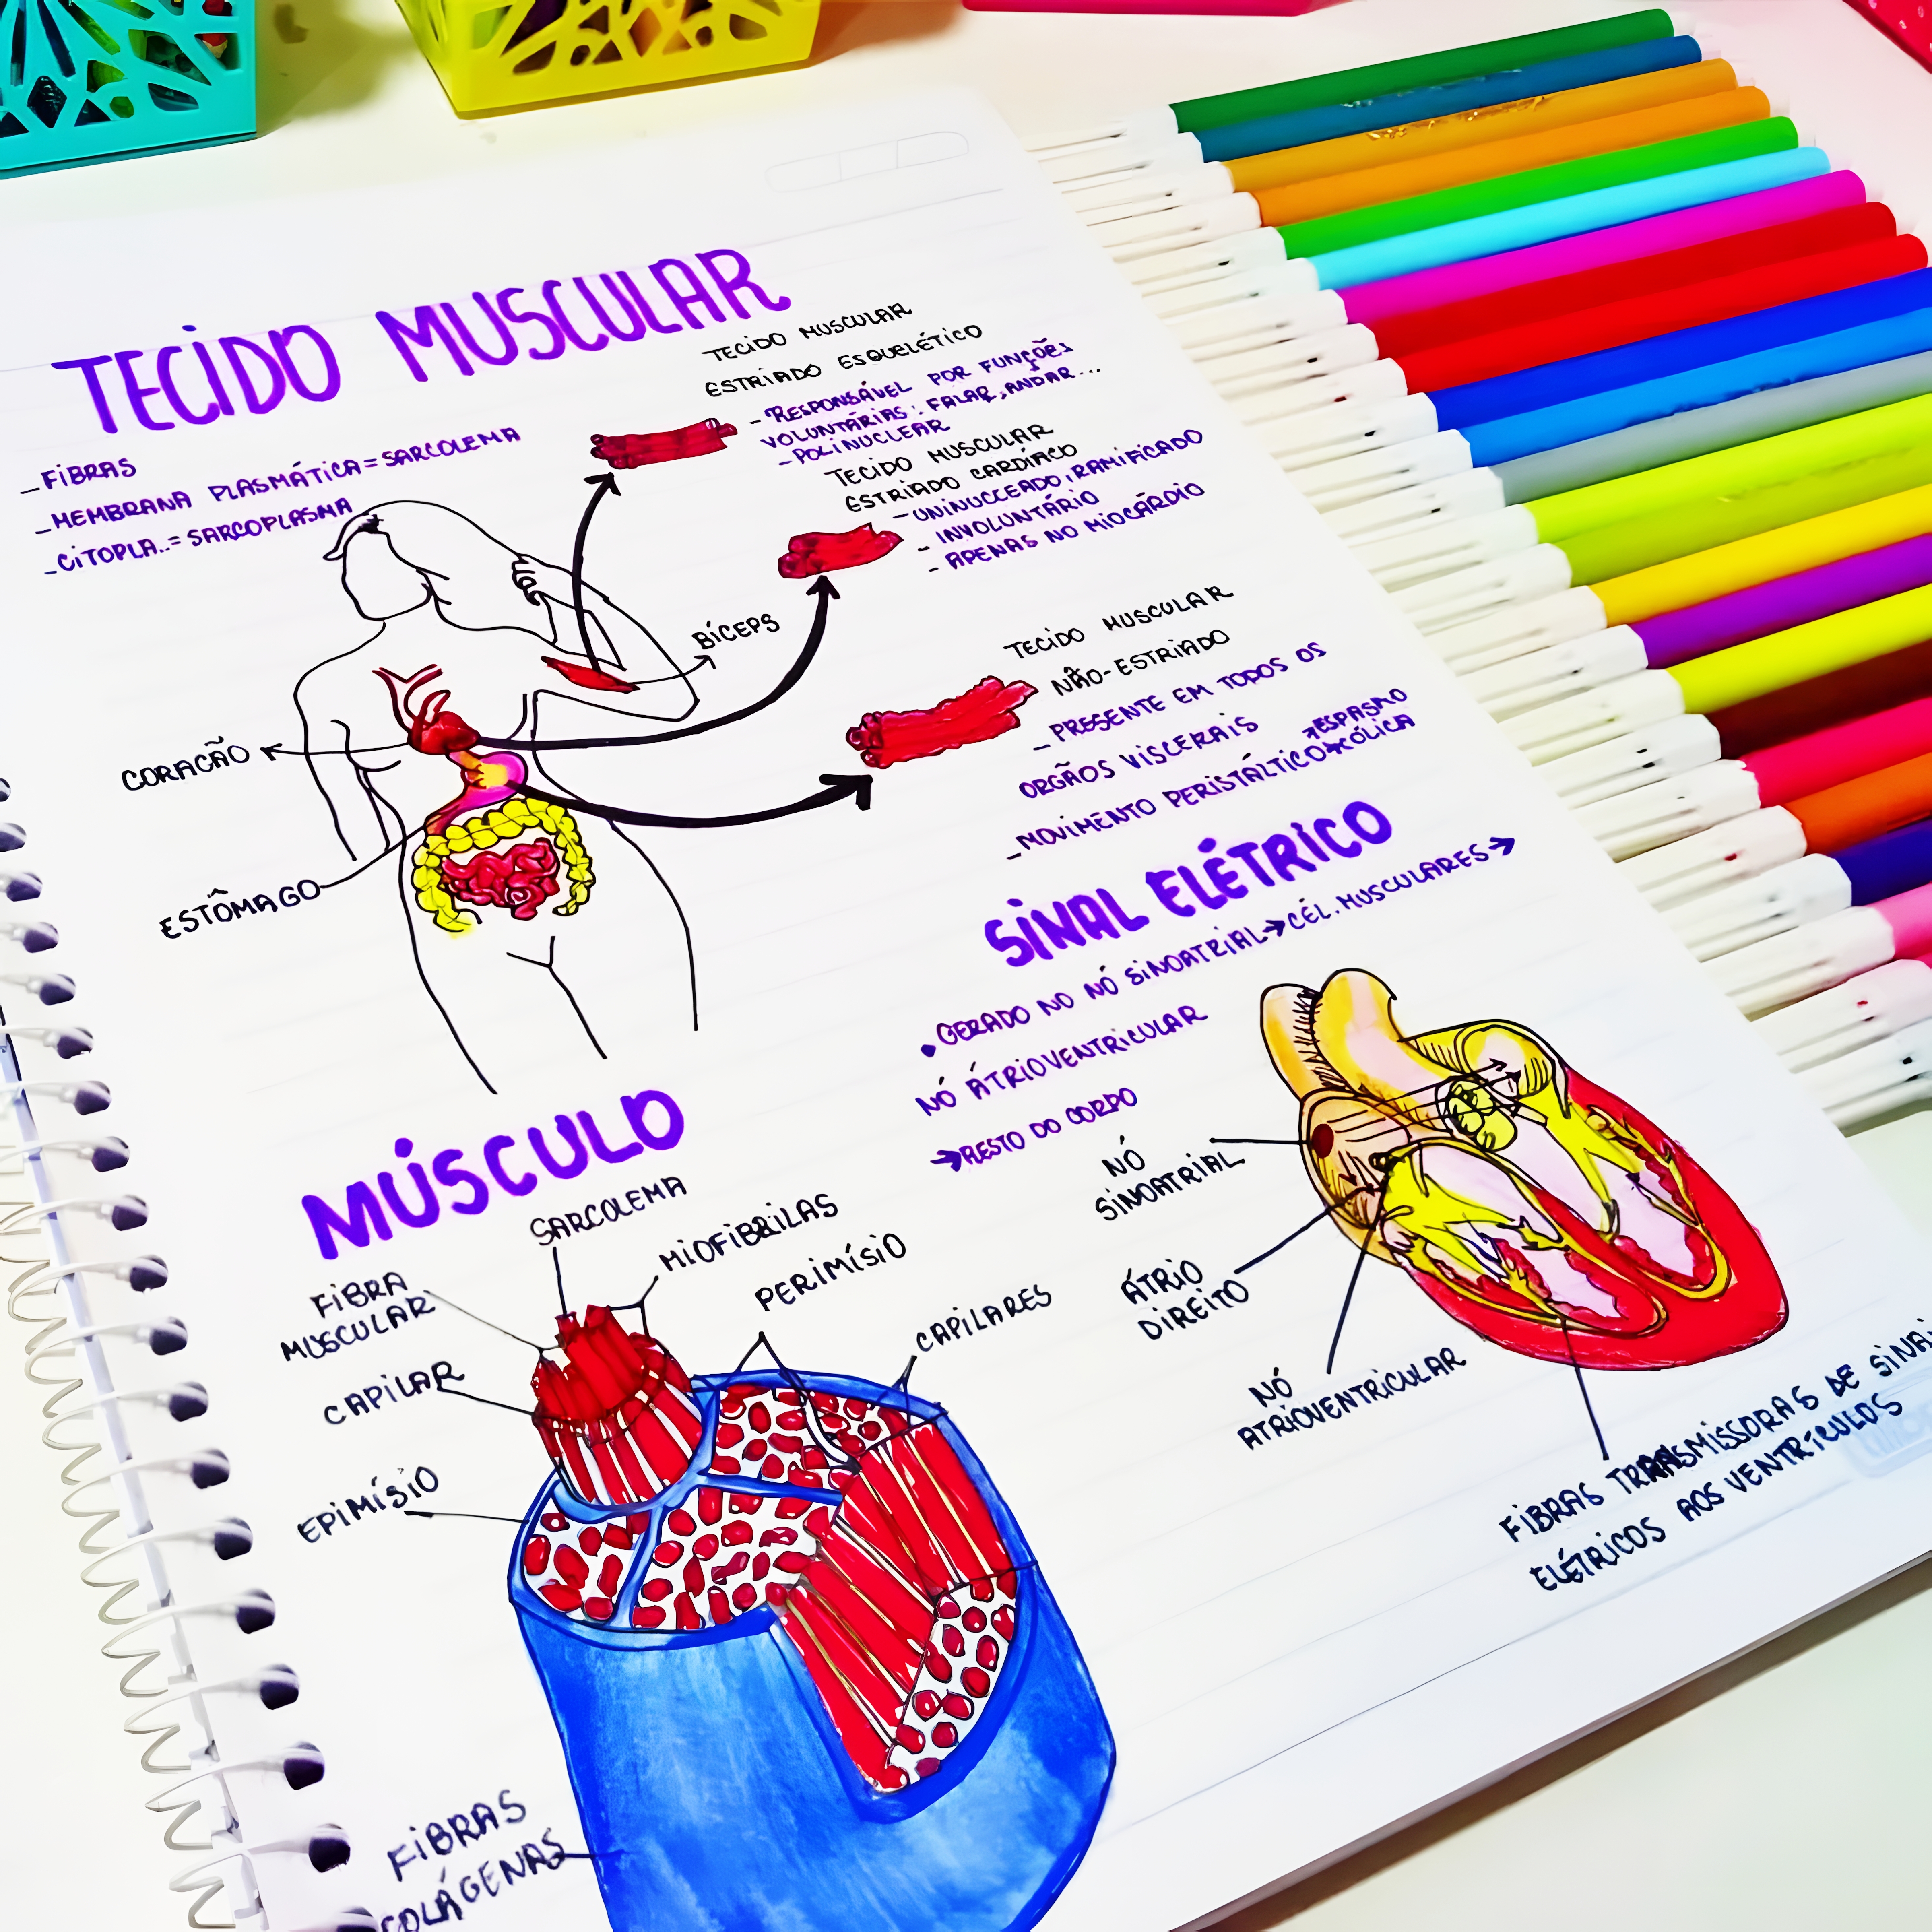 TECIDO MUSCULAR
_FIBRAS
_MEMBRANA PLASMÁTICA = SARCOLEMA
_CITOPLA..= SARCOPLASMA
TECIDO MUSCULAR
ESTRIADO ESQUELÉTICO
- RESPONSÁVEL POR FUNÇÕES
VOLUNTÁRIAS: FALAR, ANDAR...
- POLINUCLEAR
TECIDO MUSCULAR
ESTRIADO CARDÍACO
- UNINUCLEADO, RAMIFICADO
- INVOLUNTÁRIO
- APENAS NO MIOCÁRDIO
BÍCEPS
CORACÃO
ESTÔMAGO
TECIDO MUSCULAR
NÃO-ESTRIADO
_ PRESENTE EM TODOS OS
ORGÃOS VISCERAIS
_MOVIMENTO PERISTÁLTICO→CÓLICA
→ESPASMO
SINAL ELÉTRICO
• GERADO NO NÓ SINOATRIAL→CÉL. MUSCULARES→
NÓ ÁTRIOVENTRICULAR
→RESTO DO CORPO
NÓ
SINOATRIAL
ÁTRIO
DIREITO
NÓ
ATRIOVENTRICULAR
FIBRAS TRANSMISSORAS DE SINAI
ELÉTRICOS AOS VENTRÍCULOS
MÚSCULO
SARCOLEMA
MIOFIBRILAS
PERIMÍSIO
CAPILARES
FIBRA
MUSCULAR
CAPILAR
EPIMÍSIO
FIBRAS
COLÁGENAS